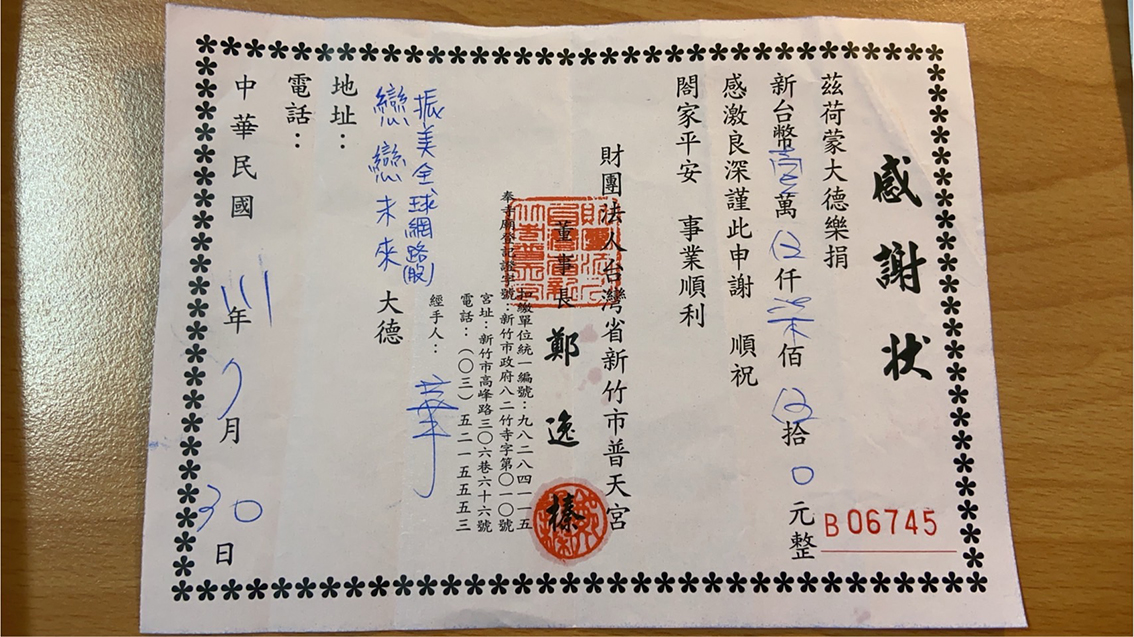 感謝狀
茲荷蒙大德樂捐
新台幣壹萬伍仟柒佰伍拾0元整
感激良深謹此申謝 順祝
閤家平安 事業順利
財團法人台灣省新竹市普天宮
董事長 鄭逸榛
扣繳單位統一編號：九八二八四一一五
奉寺廟登記證字號：新竹市政府八二竹寺字第〇一〇號
宮址：新竹市高峰路三〇六巷六十六號
電話：（〇三）五二一五五五三
經手人：華
振美全球網路(股)
戀戀未來 大德
地址：
電話：
中華民國111年9月30日
B06745